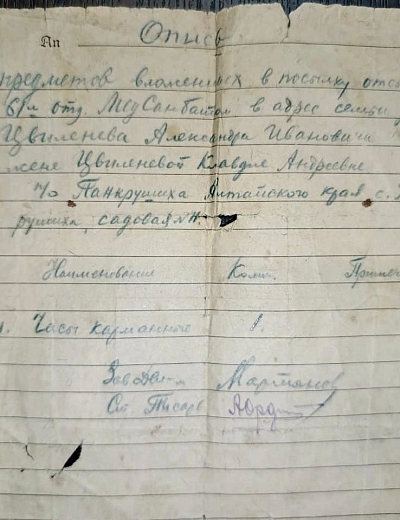 Ап
Опись
предметов вложенных в посылку
отд. Медсанбатом в адрес семьи
Цвиленева Александра Ивановича
жене Цвиленевой Клавдие Андреевне
п/о Панкрушиха Алтайского края с.
рушиха, садовая №
Наименование Колич. Примеч
1. Часы карманные 1.
Зав Дел- Мартянов
Ст. Писарь